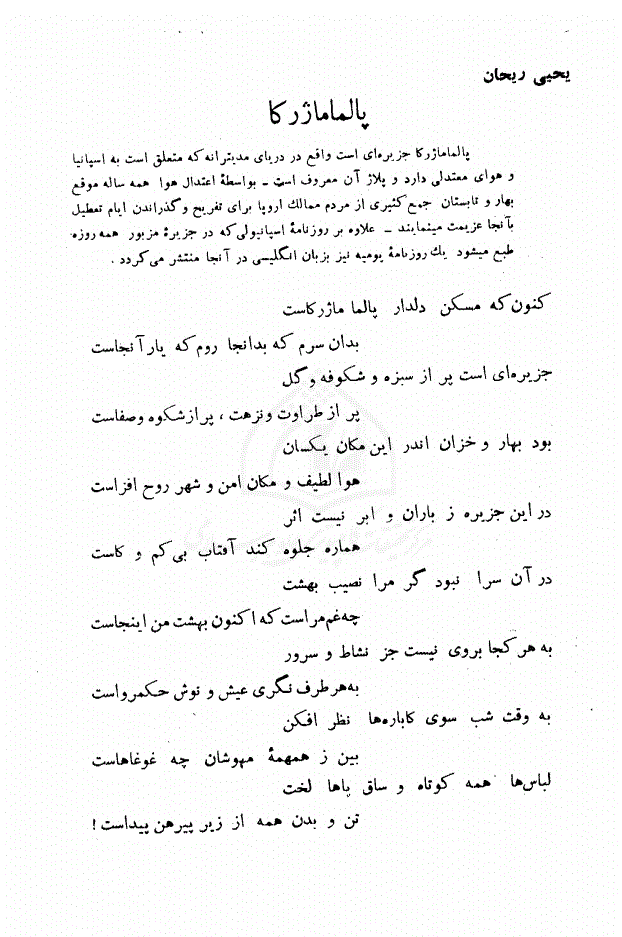 یحیی ریحان
پالماماژرکا
پالماماژرکا جزیره‌ای است واقع در دریای مدیترانه که متعلق است به اسپانیا
و هوای معتدلی دارد و پلاژ آن معروف است ـ بواسطهٔ اعتدال هوا همه ساله موقع
بهار و تابستان جمع کثیری از مردم ممالك اروپا برای تفریح و گذراندن ایام تعطیل
بآنجا عزیمت مینمایند ـ علاوه بر روزنامهٔ اسپانیولی که در جزیرهٔ مزبور همه روزه
طبع میشود یك روزنامهٔ یومیه نیز بزبان انگلیسی در آنجا منتشر می‌گردد .
کنون که مسکن دلدار پالما ماژرکاست
بدان سرم که بدانجا روم که یار آنجاست
جزیره‌ای است پر از سبزه و شکوفه و گل
پر از طراوت و نزهت ، پر از شکوه و صفاست
بود بهار و خزان اندر این مکان یکسان
هوا لطیف و مکان امن و شهر روح افزاست
در این جزیره ز باران و ابر نیست اثر
هماره جلوه کند آفتاب بی‌کم و کاست
در آن سرا نبود گر مرا نصیب بهشت
چه‌غم‌مراست که اکنون بهشت من اینجاست
به هر کجا بروی نیست جز نشاط و سرور
به‌هر طرف نگری عیش و نوش حکمرواست
به وقت شب سوی کاباره‌ها نظر افکن
بین ز همهمهٔ مهوشان چه غوغاهاست
لباس‌ها همه کوتاه و ساق پاها لخت
تن و بدن همه از زیر پیرهن پیداست !